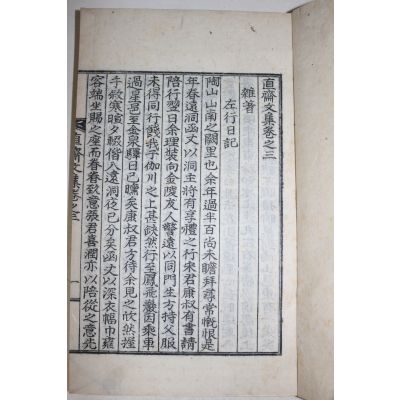 直齋文集卷之三
雜著
左行日記
陶山山南之闕里也余年過半百尚未瞻拜尋常慨恨是
年春遠洞函丈以洞主將有享禮之行宋君康叔有書請
陪行翌日余理裝向金陵友人警遠以同門生方持父服
未得同行餞我于伽川之上甚缺然行至鳳飛巖因乘車
過星至金泉驛日已曛矣康叔君方待余見之欣然握
手敘寒暄夕輟偕入遠洞夜已分矣函丈以深衣幅巾雍
容端坐賜之座而眷眷致意張君喜潤亦以陪從之意先
直齋文集卷之三
一